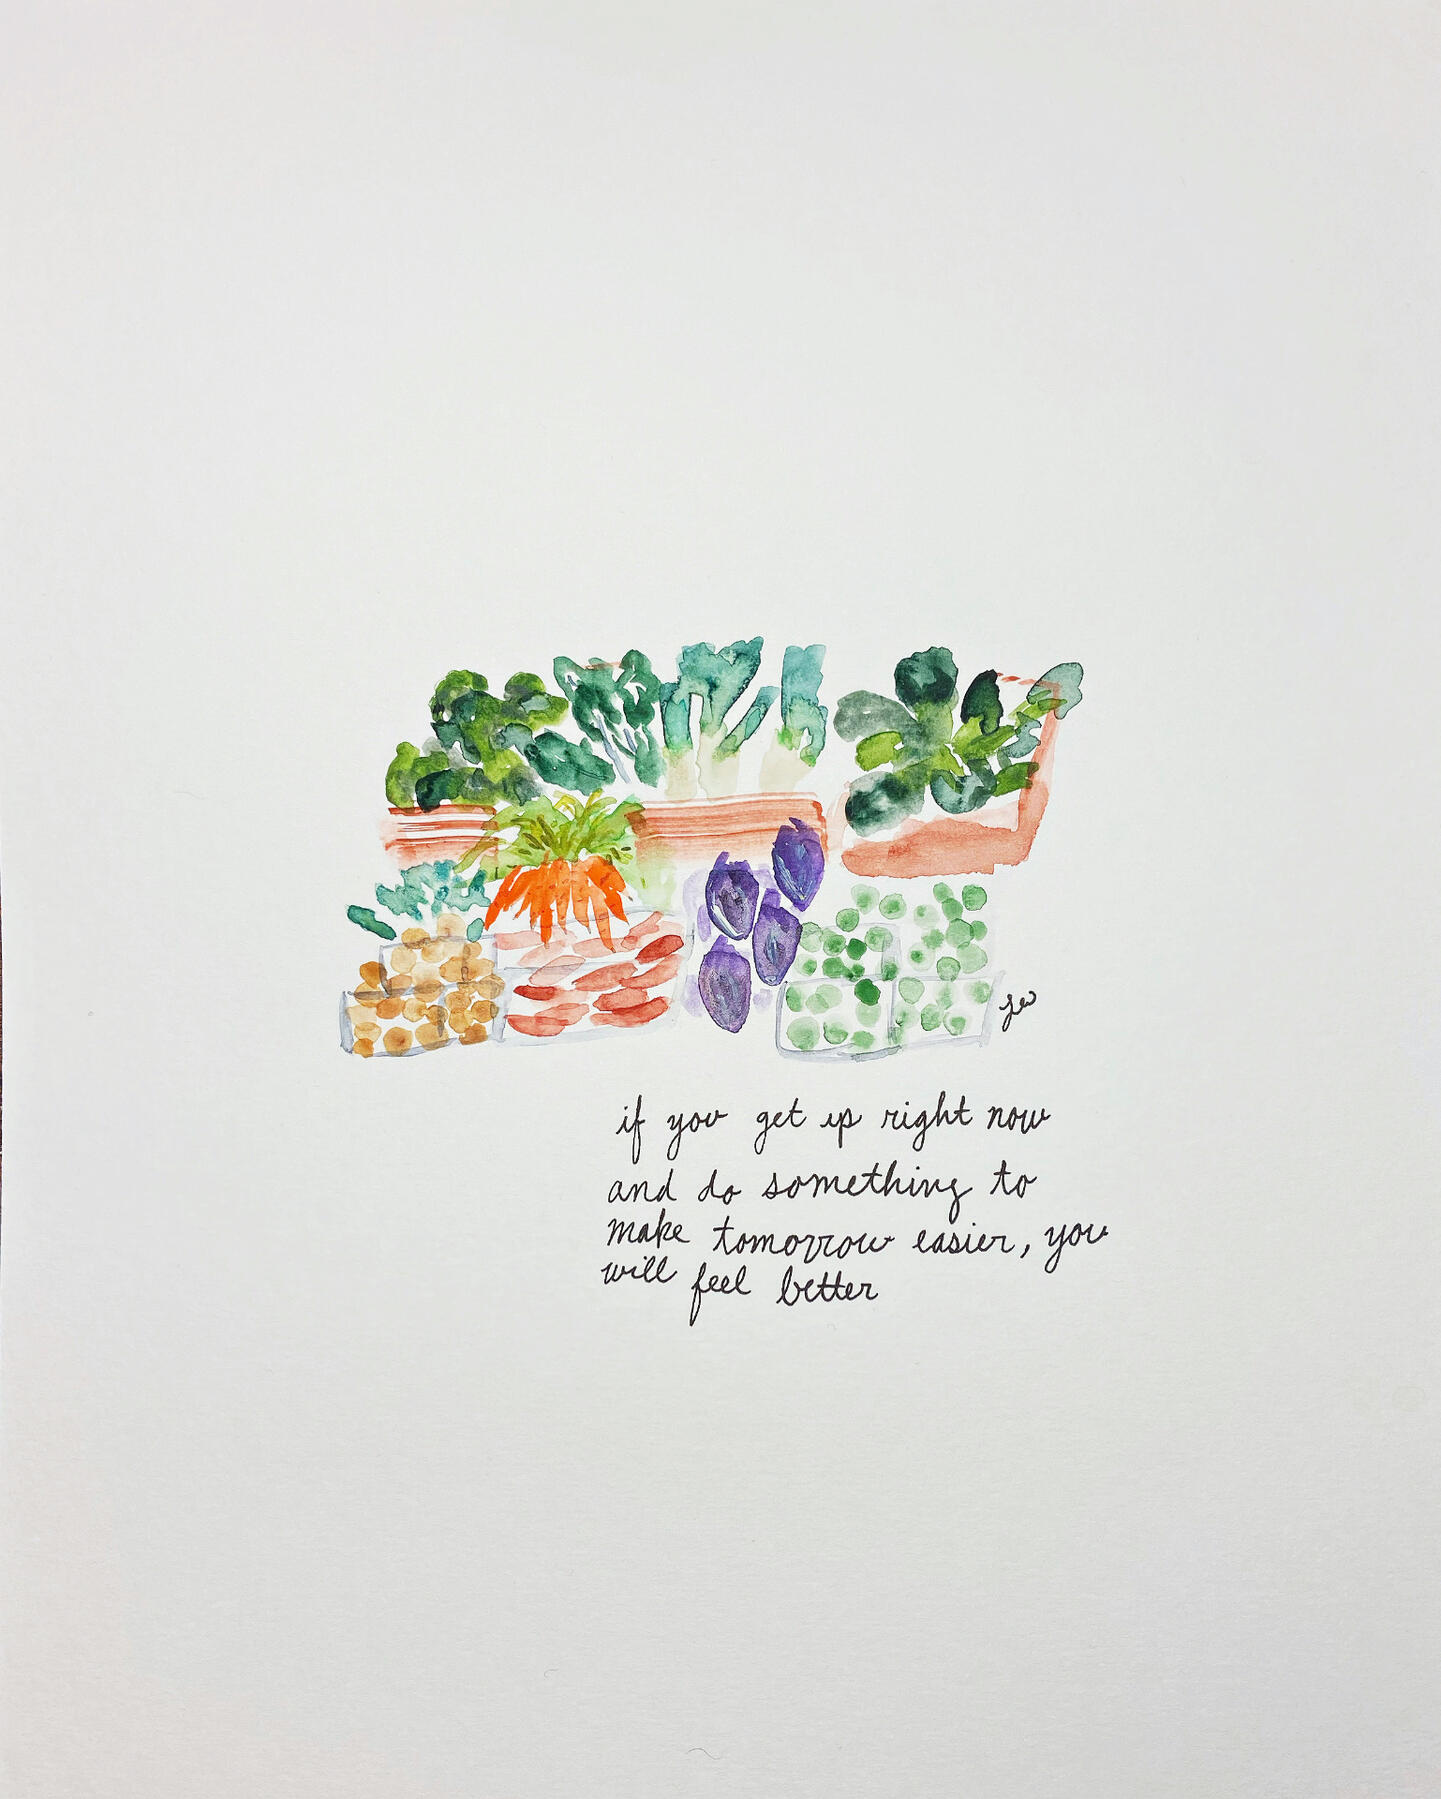 lw
if you get up right now
and do something to
make tomorrow easier, you
will feel better